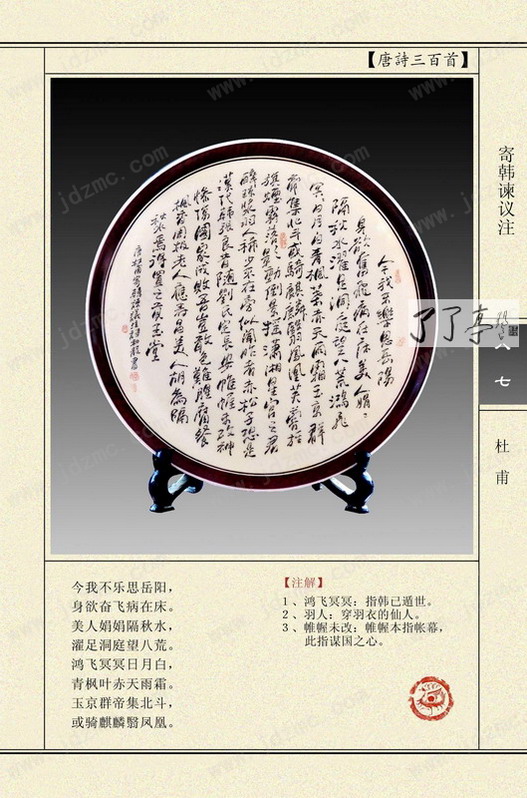 【唐詩三百首】
寄韩谏议注
了了亭
八七
杜甫
今我不樂思岳陽
身欲奮飛病在床美人娟娟
隔秋水濯足洞庭望八荒鴻飛
冥冥日月白青楓葉赤天雨霜玉京群
帝集北斗或騎麒麟翳鳳凰芙蓉旌
旗煙霧落影動倒景搖瀟湘星宮之君
醉瓊漿羽人稀少不在旁似聞昨者赤松子恐是
漢代韓張良昔隨劉氏定長安帷幄未改神
慘傷國家成敗吾豈敢色難腥腐餐
楓香周南老人應壽昌美人胡為隔
秋水焉得置之貢玉堂
今我不乐思岳阳，
身欲奋飞病在床。
美人娟娟隔秋水，
濯足洞庭望八荒。
鸿飞冥冥日月白，
青枫叶赤天雨霜。
玉京群帝集北斗，
或骑麒麟翳凤凰。
【注解】
1、鸿飞冥冥：指韩已遁世。
2、羽人：穿羽衣的仙人。
3、帷幄未改：帷幄本指帐幕，
此指谋国之心。
www.jdzmc.com